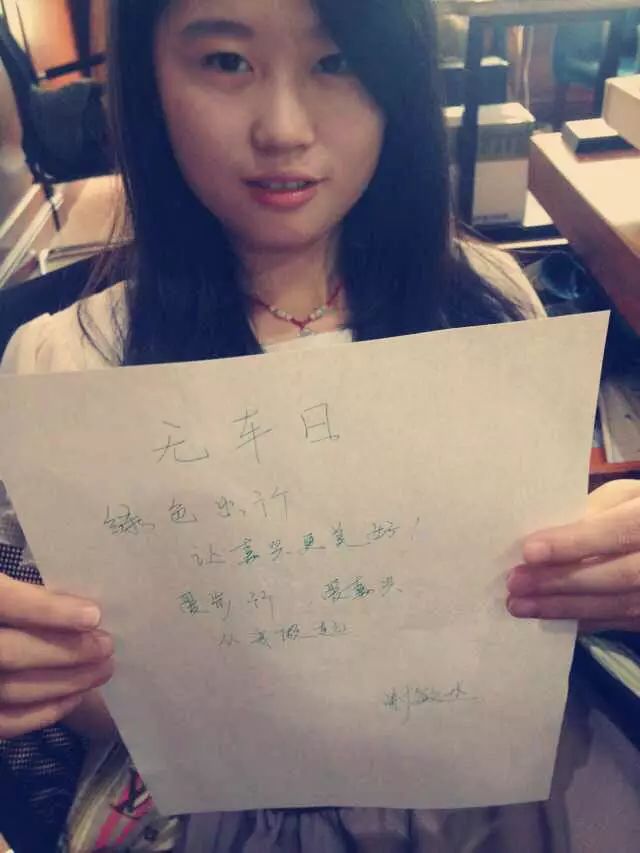 无车日
绿色出行
让嘉兴更美好！
爱行 爱嘉兴
从我做起